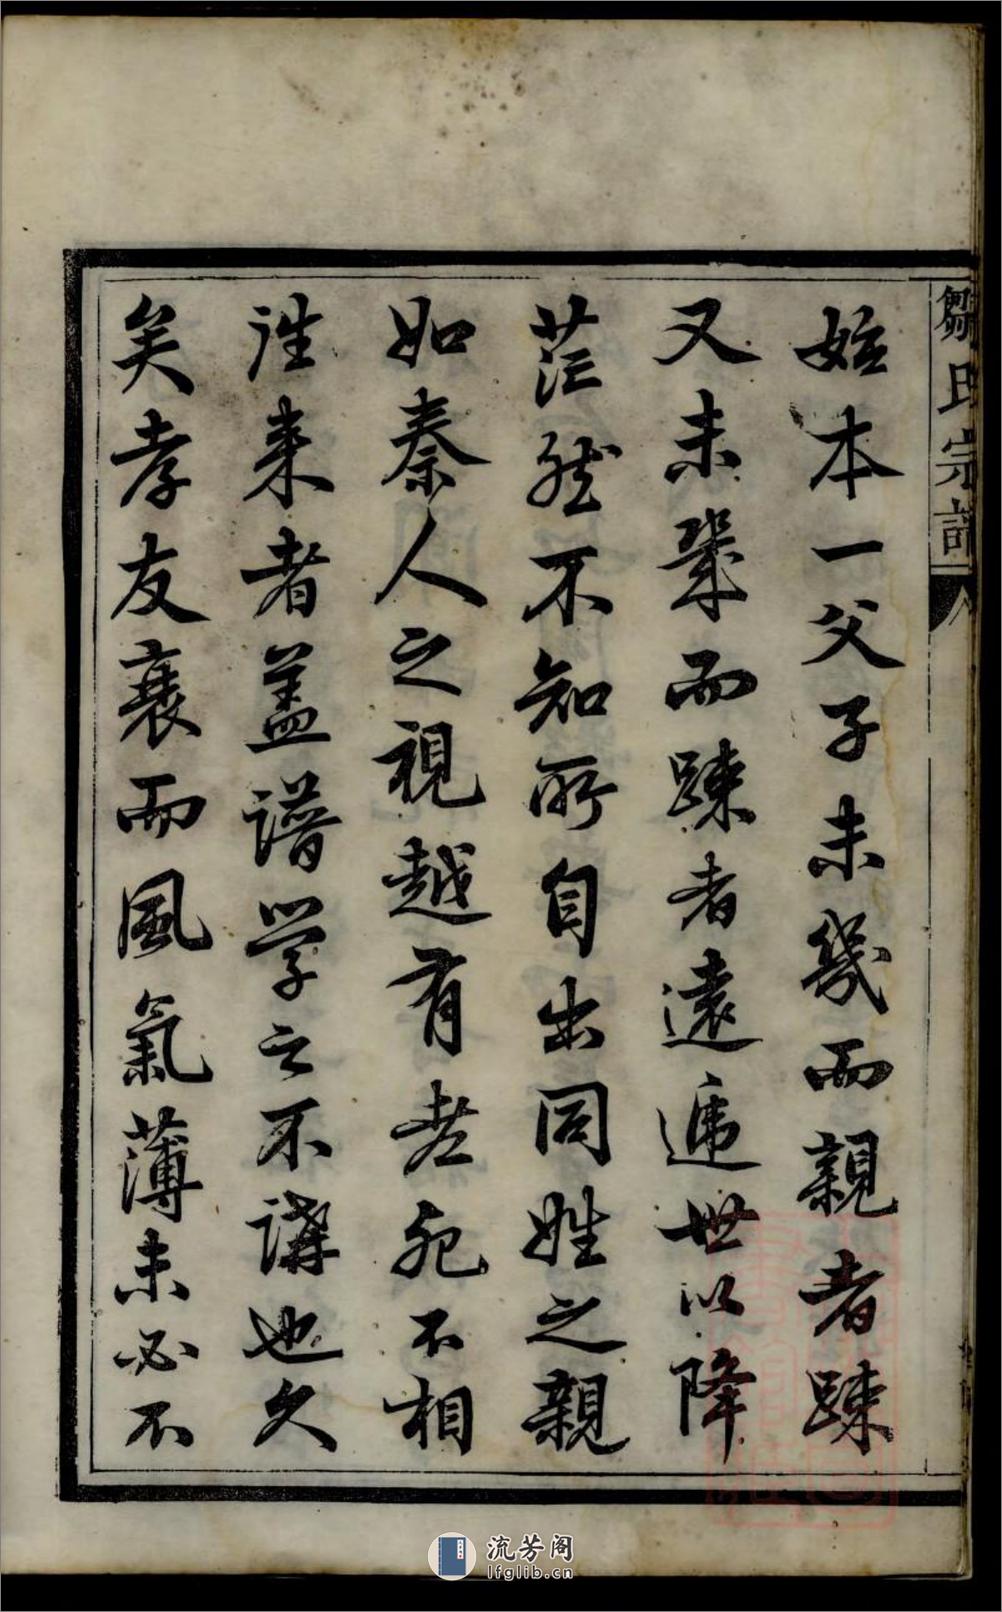 鄒氏宗譜
始本一父子未幾而親者踈
又未幾而踈者遠遞世以降
茫然不知所自出同姓之親
如秦人之視越有老死不相
往来者盖譜学之不講也久
矣孝友衰而風氣薄未必不
流芳阁
lfglib.cn